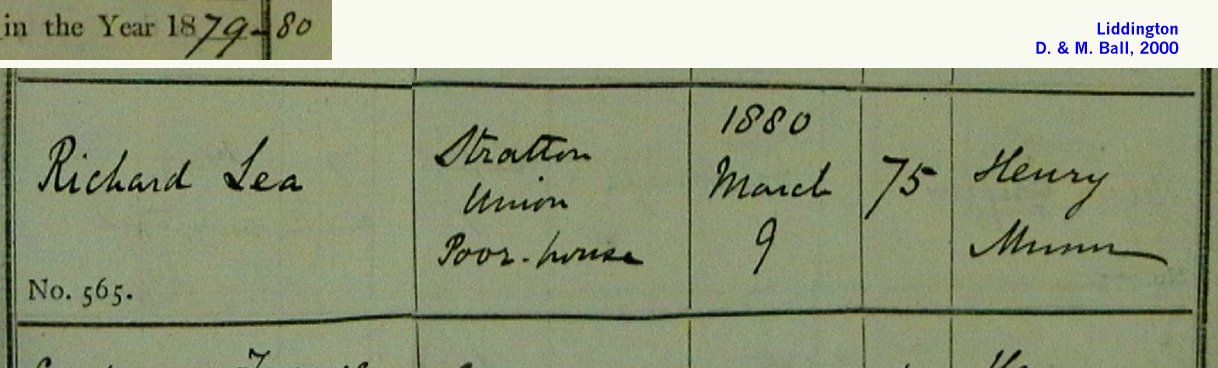 in the Year 1879-80
Liddington
D. & M. Ball, 2000
Richard Lea
Stratton
Union
Poor-house
1880
March
9
75
Henry
Munn
No. 565.